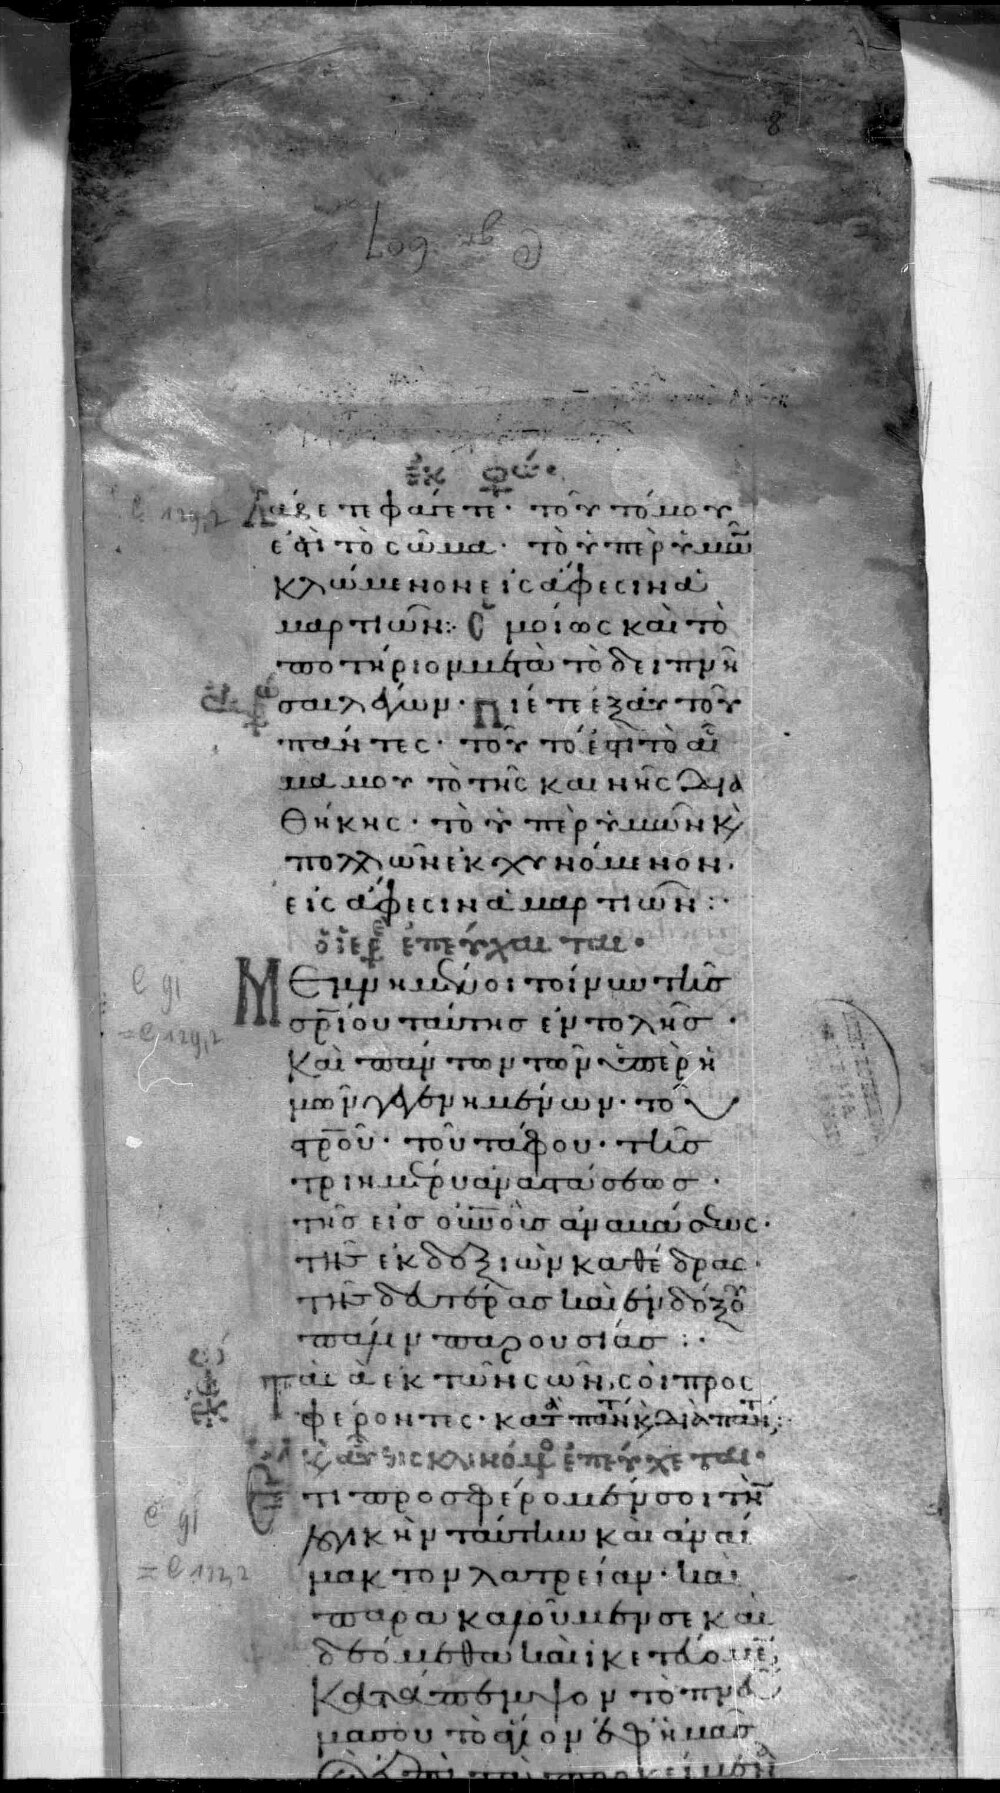 8
C gr. 607
ἐκφώ.
Λάβετε φάγετε· τοῦτό μου
C 129,2
ἐστὶ τὸ σῶμα· τὸ ὑπὲρ ὑμῶ
κλώμενον εἰς ἄφεσιν ἁ
μαρτιῶν: Ὁμοίως καὶ τὸ
ποτήριον μετὰ τὸ δειπνῆ
σαι λέγων· Πίετε ἐξ αὐτοῦ
πάντες· τοῦτό ἐστὶ τὸ αἷ
μά μου τὸ τῆς καινῆς δια
θήκης· τὸ ὑπὲρ ὑμῶν κ
πολλῶν ἐκχυνόμενον·
εἰς ἄφεσιν ἁμαρτιῶν:·
ὁ ἱερ ἐπεύχαιται·
Μεμνημένοι τοίνυν τῆς
σρίου ταύτης ἐντολῆς·
C 91
= C 129,2
Καὶ πάντων τῶν ὑπὲρ ἡ
μῶν γεγενημένων· τοῦ
στροῦ· τοῦ τάφου· τῆς
τριημέρου ἀναστάσεως·
τῆς εἰς οὐνοὺς ἀναβάσεως·
τῆς ἐκ δεξιῶν καθέδρας·
τῆς δευτέρας καὶ ἐνδόξου
πάλιν παρουσίας:·
ἐκφώ
Τὰ σὰ ἐκ τῶν σῶν σοὶ προς
φέροντες· κατ πάντ κ διὰ πάντ:
κ αὖθις κλινόμ ἐπεύχεται·
Ἔτι προσφέρομέν σοι τὴν
C 91
λογικὴν ταύτην καὶ ἀναί
= C 132,2
μακτον λατρείαν· καὶ
παρακαλοῦμέν σε καὶ
δεόμεθα καὶ ἱκετεύομε
Κατάπεμψον τὸ πνεῦ
μά σου τὸ ἅγιον ἐφ' ἡμᾶς